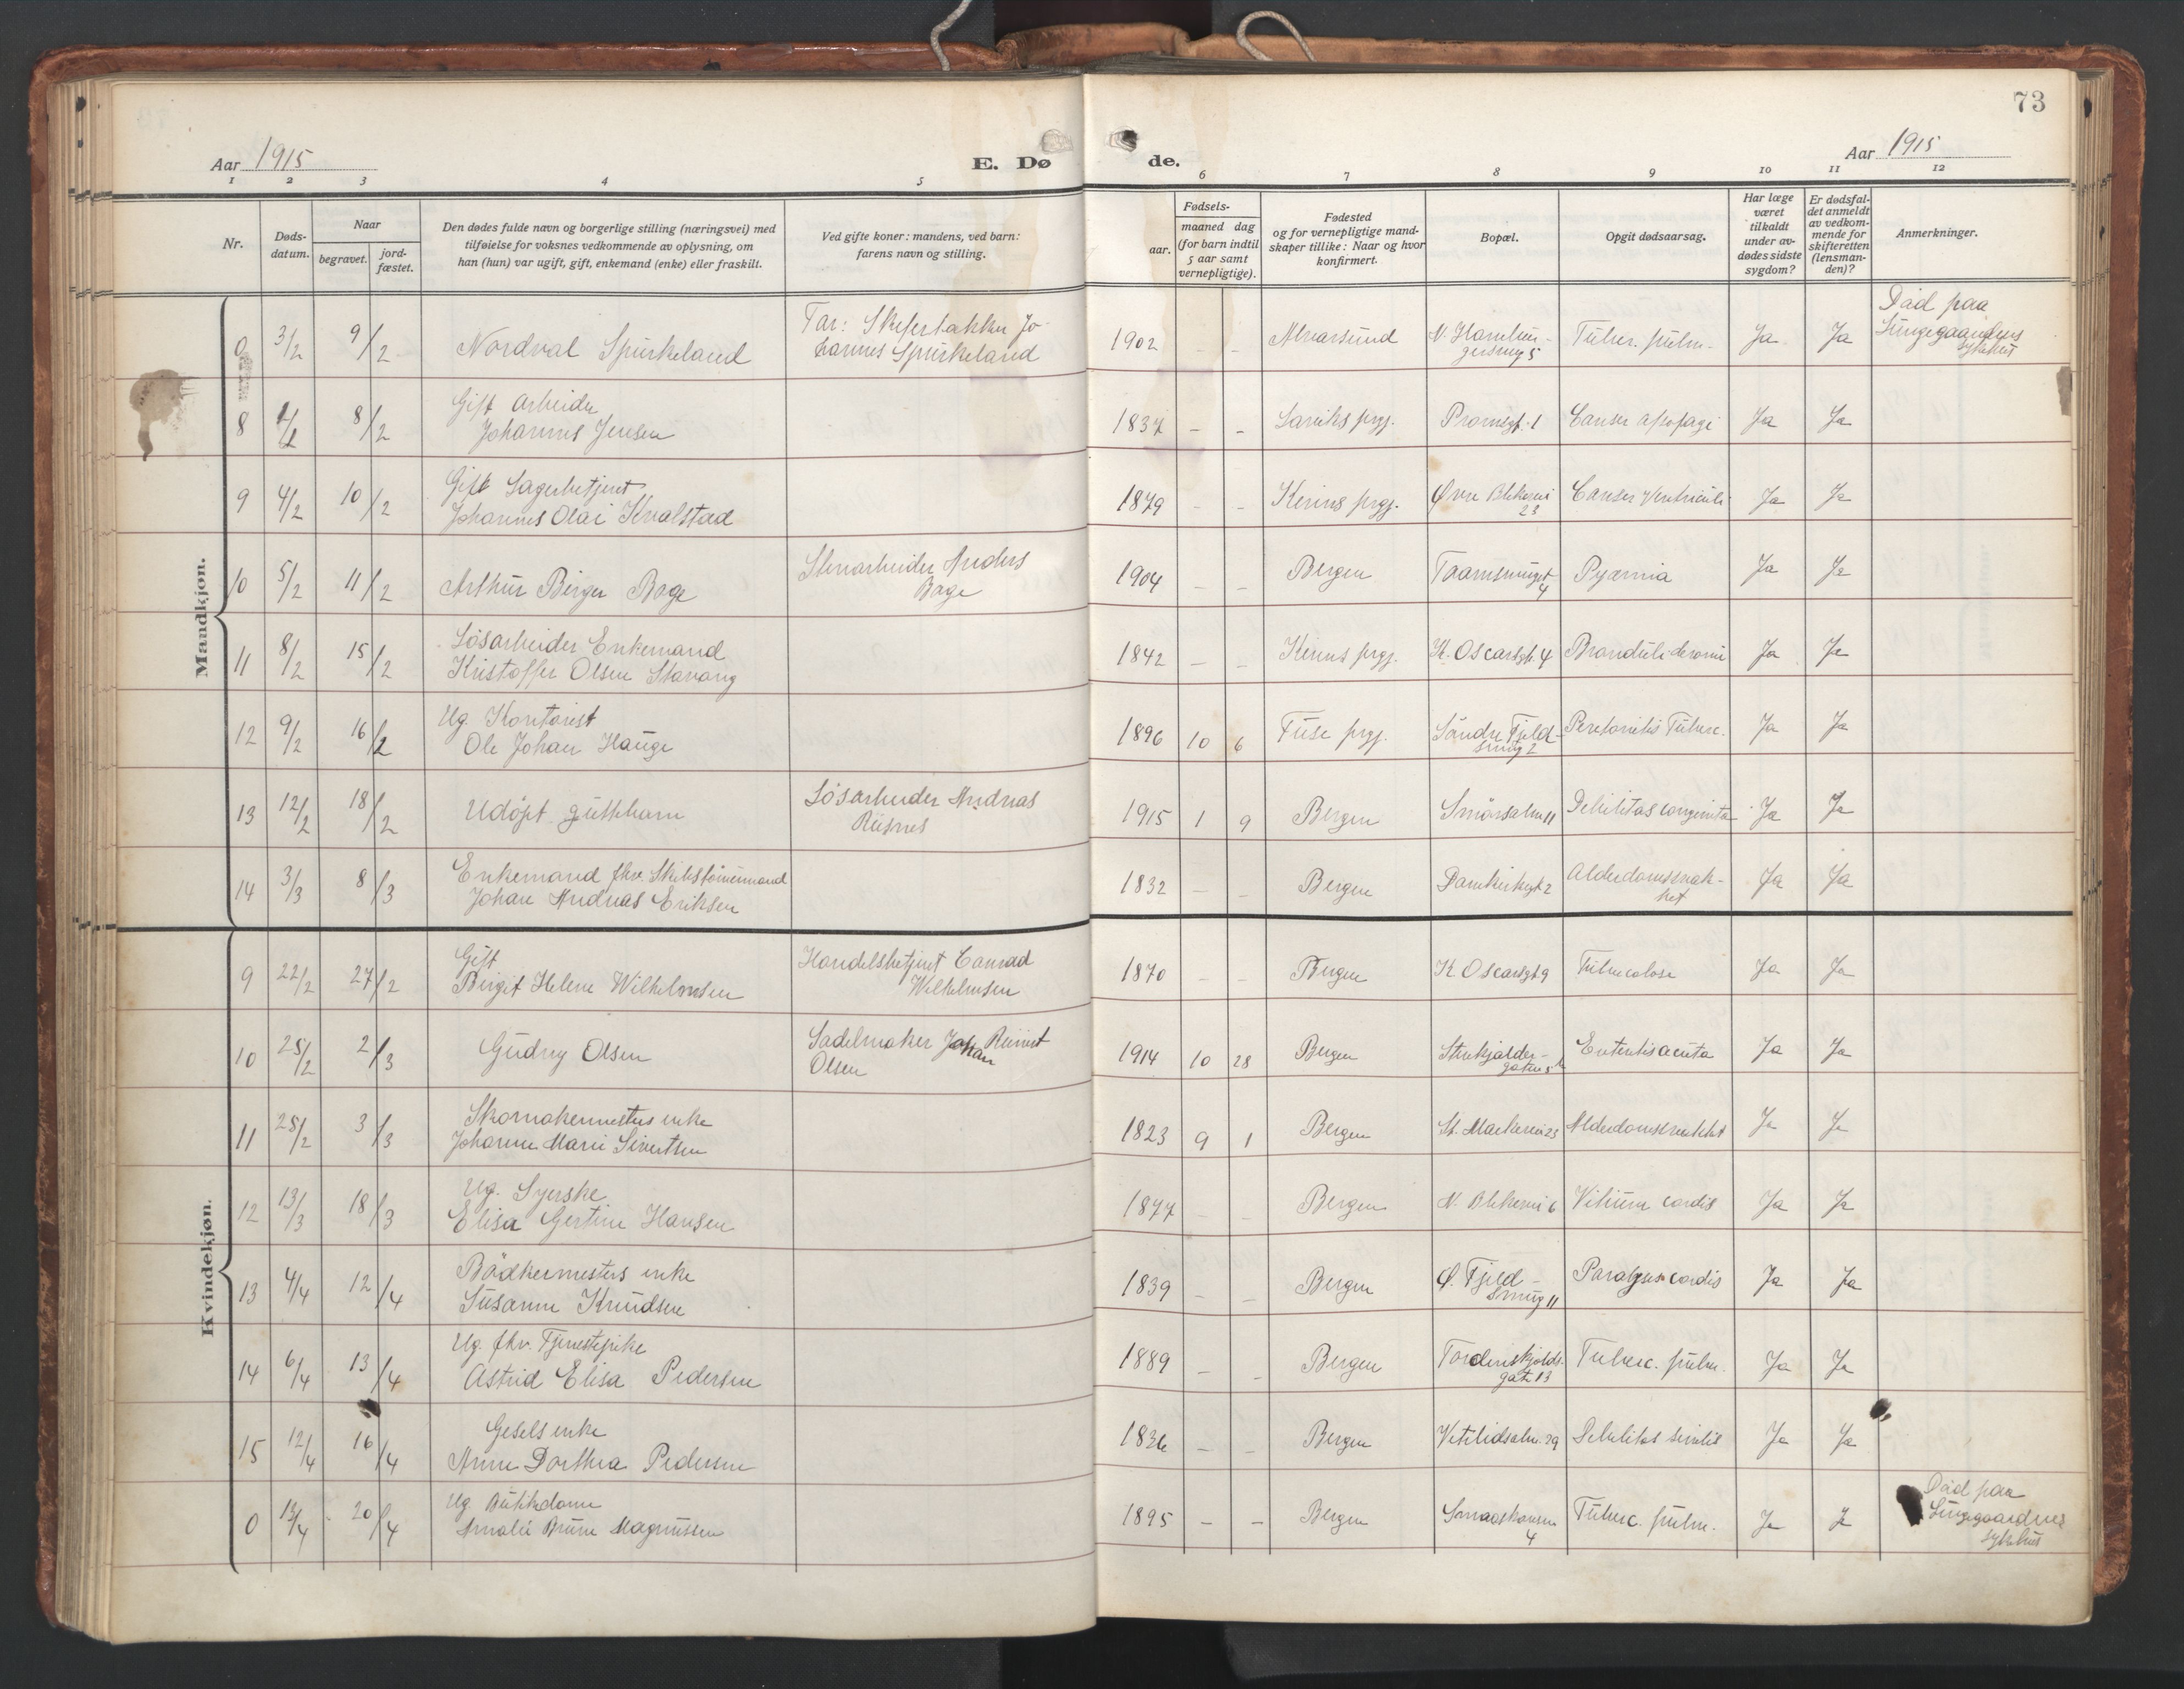 73
Aar 1915
E. Dø
de.
Aar 1915
1 2 3 4 5 6 7 8 9 10 11 12
Nr.
Døds-
datum.
Naar
begravet.
jord-
fæstet.
Den dødes fulde navn og borgerlige stilling (næringsvei) med
tilføielse for voksnes vedkommende av oplysning, om
han (hun) var ugift, gift, enkemand (enke) eller fraskilt.
Ved gifte koner: mandens, ved barn:
farens navn og stilling.
Fødsels-
aar.
maaned dag
(for barn indtil
5 aar samt
vernepligtige).
Fødested
og for vernepligtige mand-
skaper tillike: Naar og hvor
konfirmert.
Bopæl.
Opgit dødsaarsag.
Har læge
været
tilkaldt
under av-
dødes sidste
sygdom?
Er dødsfal-
det anmeldt
av vedkom-
mende for
skifteretten
(lensman-
den)?
Anmerkninger.
Mandkjøn.
0 3/2 9/2 Nordval Spurkeland
Far: Jo-
hannes Spurkeland
1902 - - Alvarsund
5 Tuber. pulm. Ja Ja
Död paa
Lungegaardens
sykehus
8 8/2 Gift Arbeider
Johannes Jensen
1837 - - prgj. 1 Cancer Ja Ja
9 4/2 10/2 Gift Lagerbetjent
Johannes Olai Kvalstad
1879 - - Kinns prgj. Øvre Blekevei
23
Cancer Ventriculi Ja Ja
10 5/2 11/2 Arthur Birger Bage
Stenarbeider Anders
Bage
1904 - - Bergen
4
Pyæmia Ja Ja
11 8/2 15/2 Løsarbeider Enkemand
Kristoffer Olsen Stavang
1842 - - Kinns prgj. K. Oscarsgt. 4 Ja Ja
12 9/2 16/2 Ug. Kontorist
Ole Johan Hauge
1896 10 6 Fuse prgj. Söndre Fjeld-
smug 2
Peretonitis Tuberc. Ja Ja
13 12/2 18/2 Udöpt guttebarn
Lösarbeider Andreas
Risnes
1915 1 9 Bergen Smörsalm 11 Debilitas congenita Ja Ja
14 3/3 8/3 Enkemand fhv. Skibstömmermand
Johan Andreas Eriksen
1832 - - Bergen Domkirkegt 2 Alderdomssvak-
het
Ja Ja
Kvindekjøn.
9 22/2 27/2 Gift
Birgit Helene Wilhelmsen
Handelsbetjent Conrad
Wilhelmsen
1870 - - Bergen K Oscarsgt 9 Tuberculose Ja Ja
10 25/2 2/3 Gudny Olsen
Sadelmaker Johan
Olsen
1914 10 28 Bergen Stenkjelder-
gaten 5
Enteritis acuta Ja Ja
11 25/2 3/3 Skomakermesters enke
Johanne Marie Sivertsen
1823 9 1 Bergen St. Markevei 23 Alderdomssvakhet Ja Ja
12 13/3 18/3 Ug. Syerske
Elisa Gertine Hansen
1877 - - Bergen N. Blekevei 6 Vitium cordis Ja Ja
13 4/4 12/4 Bödkermesters enke
Susanne Knudsen
1839 - - Bergen Ø. Fjeld-
smug 11
Paralysis cordis Ja Ja
14 6/4 13/4 Ug. fhv. Tjenestepike
Astrid Elisa Pedersen
1889 - - Bergen Tordenskjolds-
gate 13
Tuberc. pulm. Ja Ja
15 12/4 16/4 Gesels enke
Anne Dorthea Pedersen
1836 - - Bergen Vetrlidsalm. 29 Debilitas senilis Ja Ja
0 13/4 20/4 Ug. Butikdame
Amalie Magnussen
1895 - - Bergen
4
Tuberc. pulm. Ja Ja
Död paa
Lungegaardens
sykehus